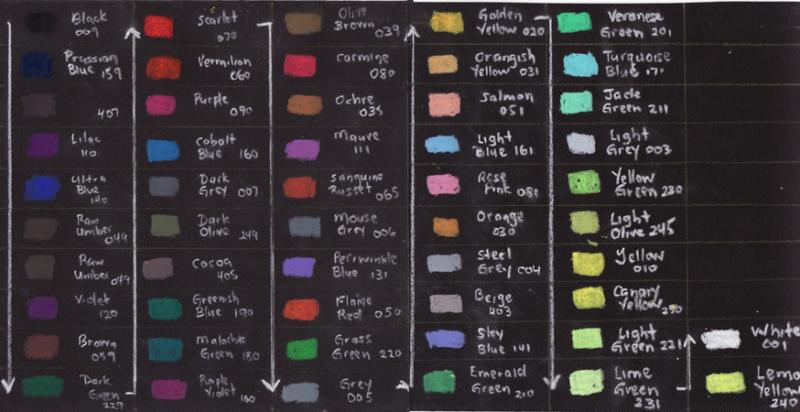 Black
009
Prussian
Blue 159
407
Lilac
110
Ultra
Blue
180
Raw
Umber
049
Raw
Umber 049
Violet
120
Brown
059
Dark
Green
229
Scarlet
070
Vermilion
060
Purple
090
Cobalt
Blue 160
Dark
Grey 007
Dark
Olive 249
Cocoa
405
Greenish
Blue 190
Malachite
Green 180
Purple
Violet 100
Olive
Brown 039
Carmine
080
Ochre
035
Mauve
111
Sanguine
Russet 065
Mouse
Grey 006
Periwinkle
Blue 131
Flame
Red 050
Grass
Green 220
Grey
005
Golden
Yellow 020
Orangish
Yellow 031
Salmon
051
Light
Blue 161
Rose
Pink 081
Orange
030
Steel
Grey 004
Beige
403
Sky
Blue 141
Emerald
Green 210
Veronese
Green 201
Turquoise
Blue 171
Jade
Green 211
Light
Grey 003
Yellow
Green 230
Light
Olive 245
Yellow
010
Canary
Yellow 250
Light
Green 221
Lime
Green
231
White
001
Lemon
Yellow
240